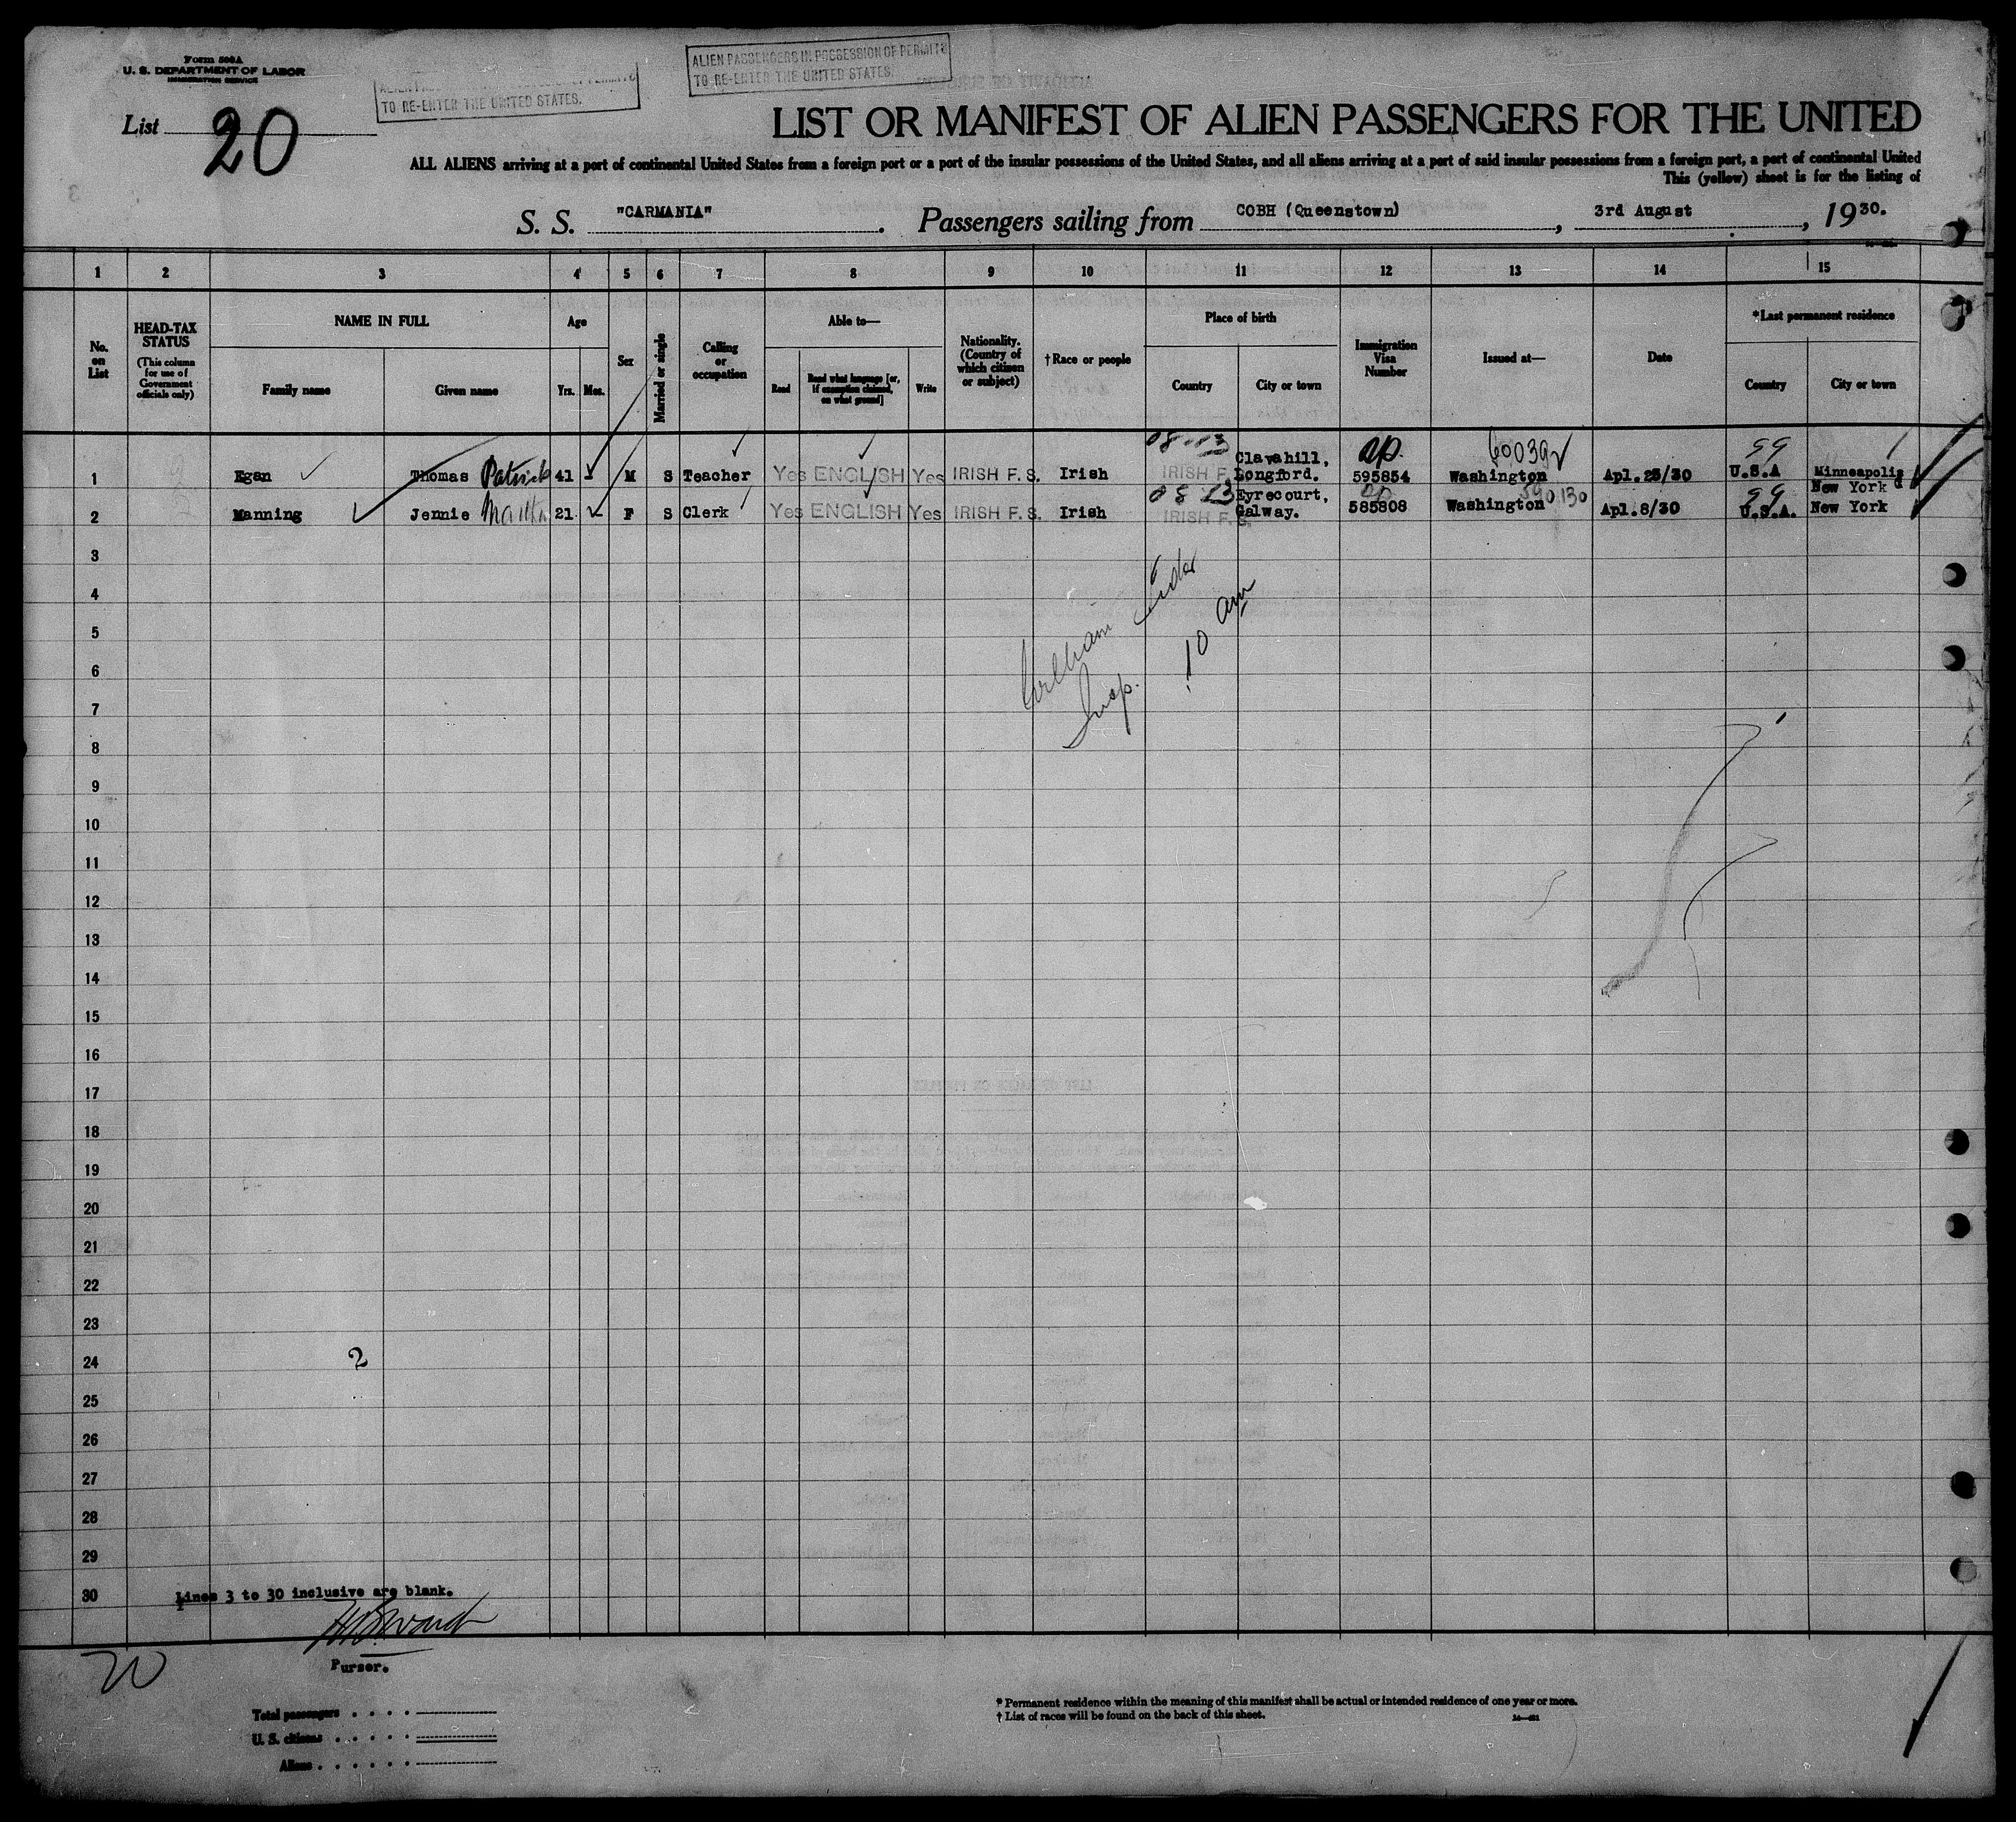 Form 500A
U. S. DEPARTMENT OF LABOR
IMMIGRATION SERVICE
TO RE-ENTER THE UNITED STATES.
ALIEN PASSENGERS IN POSSESSION OF PERMITS
TO RE-ENTER THE UNITED STATES.
List 20
LIST OR MANIFEST OF ALIEN PASSENGERS FOR THE UNITED
ALL ALIENS arriving at a port of continental United States from a foreign port or a port of the insular possessions of the United States, and all aliens arriving at a port of said insular possessions from a foreign port, a port of continental United
This (yellow) sheet is for the listing of
S. S. "CARMANIA". Passengers sailing from COBH (Queenstown), 3rd August, 1930.
1 2 3 4 5 6 7 8 9 10 11 12 13 14 15
No. on List
HEAD-TAX STATUS
(This column for use of Government officials only)
NAME IN FULL
Family name
Given name
Age
Yrs. Mos.
Sex
Married or single
Calling or occupation
Able to—
Read
Read what language [or, if exemption claimed, on what ground]
Write
Nationality. (Country of which citizen or subject)
† Race or people
Place of birth
Country
City or town
Immigration Visa Number
Issued at—
Date
*Last permanent residence
Country
City or town
1 Egan Thomas Patrick 41 M S Teacher Yes ENGLISH Yes IRISH F. S. Irish IRISH F. Clavahill, Longford. 595854 Washington Apl.25/30 U.S.A Minneapolis
New York
2 Manning Jennie Martha 21 F S Clerk Yes ENGLISH Yes IRISH F. S. Irish IRISH F. S. Eyrecourt, Galway. 585808 Washington 590130 Apl.8/30 U.S.A. New York
3
4
5
6
7
8
9
10
11
12
13
14
15
16
17
18
19
20
21
22
23
24
25
26
27
28
29
30
William
Insp.
10 am
2
Lines 3 to 30 inclusive are blank.
Purser.
20
Total passengers
U. S. citizens
Aliens
* Permanent residence within the meaning of this manifest shall be actual or intended residence of one year or more.
† List of races will be found on the back of this sheet.